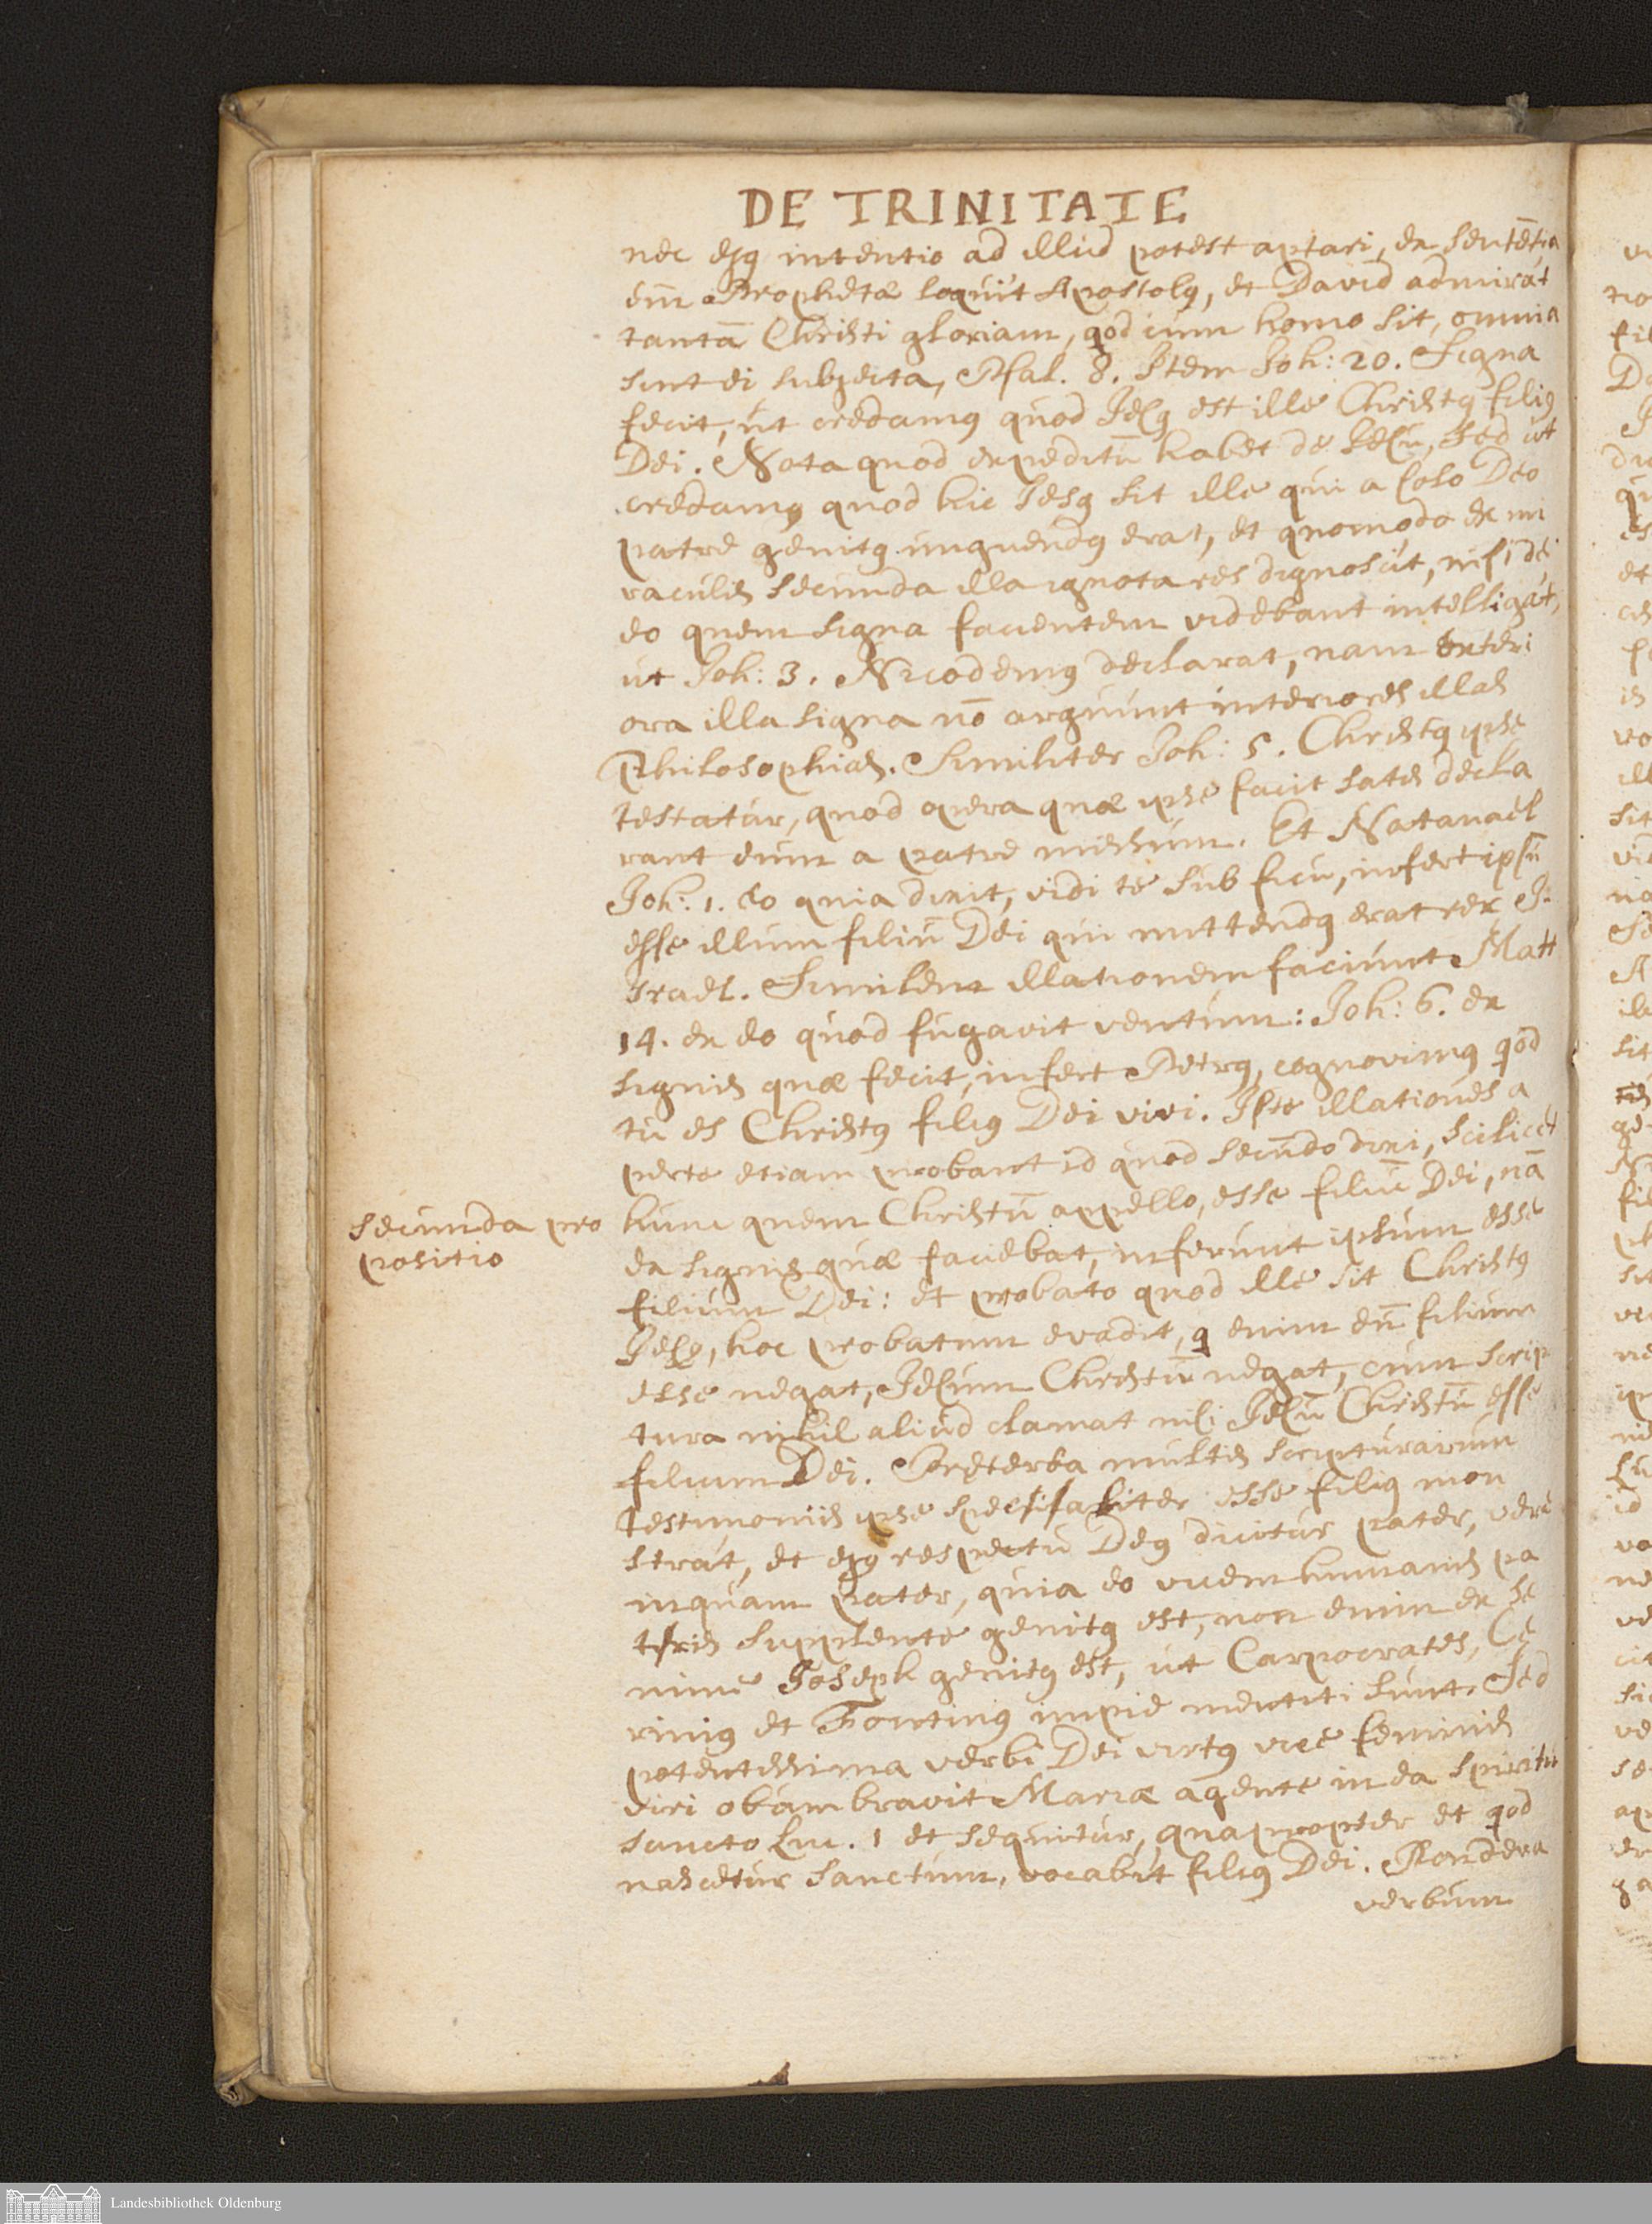 DE TRINITATE
nec ejꝰ intentio ad illud potest aptari, ex sentētia
em̄ Prophetæ loquit Apostolꝰ, et David admirat
tantā Christi gloriam, qod cum homo sit, omnia
sint ei subjecta, Psal. 8. Item Joh: 20. Signa
fecit, ut credamꝰ quod Jesꝰ est ille Christꝰ filiꝰ
Dei. Nota quod expeditū habet de Jesu, sed ut
credamꝰ quod hic Jesꝰ sit ille qui a solo Deo
patre genitꝰ unguendꝰ erat, et quomodo ex mi
raculis secunda illa ignota res dignoscit, nisi de
eo quem signa facientem videbant intelligat,
ut Joh: 3. Nicodemꝰ declarat, nam exteri
ora illa signa nō arguunt interiores illas
Philosophias. Similiter Joh: 5. Christꝰ ipse
testatur, quod opera quæ ipse facit satis decla
rant eum a patre missum. Et Natanael
Joh: 1. eo quia dixit, vidi te sub ficu, infert ipsū
esse illum filiū Dei qui mittendꝰ erat rex I-
srael. Similem illationem faciunt Matt
14. ex eo quod fugavit ventum: Joh: 6. ex
signis quæ fecit, infert Petrꝰ, cognovimꝰ qod
tu es Christꝰ filiꝰ Dei vivi. Iste illationes a
perte etiam probant id quod secūdo dixi, scilicet
secunda pro
positio
hunc quem Christū appello, esse filiū Dei, nā
ex signis quæ faciebat, inferunt ipsum esse
filium Dei: et probato quod ille sit Christꝰ
Jesꝰ, hoc probatum evadit, q enim eū filium
esse negat, Jesum Christū negat, cum scrip
tura nihil aliud clamat nisi Jesū Christū esse
filium Dei. Præterea multis scripturarum
testimoniis ipse specifialiter esse filiꝰ mon
strat, et ejꝰ respectu Deꝰ dicitur pater, vere
inquam pater, quia eo vicem humanis pa
tris supplente genitꝰ est, non enim ex se
mine Joseph genitꝰ est, ut Carpocrates, Ce
rinꝰ et Foortinꝰ impie mentiti sunt. Sed
potentissima verbi Dei virtꝰ vice seminis
viri obumbravit Mariæ agente in ea spiritu
sancto Luc. 1 et sequitur, quapropter et qod
nascetur sanctum, vocabit filiꝰ Dei. Pondera
verbum
Landesbibliothek Oldenburg